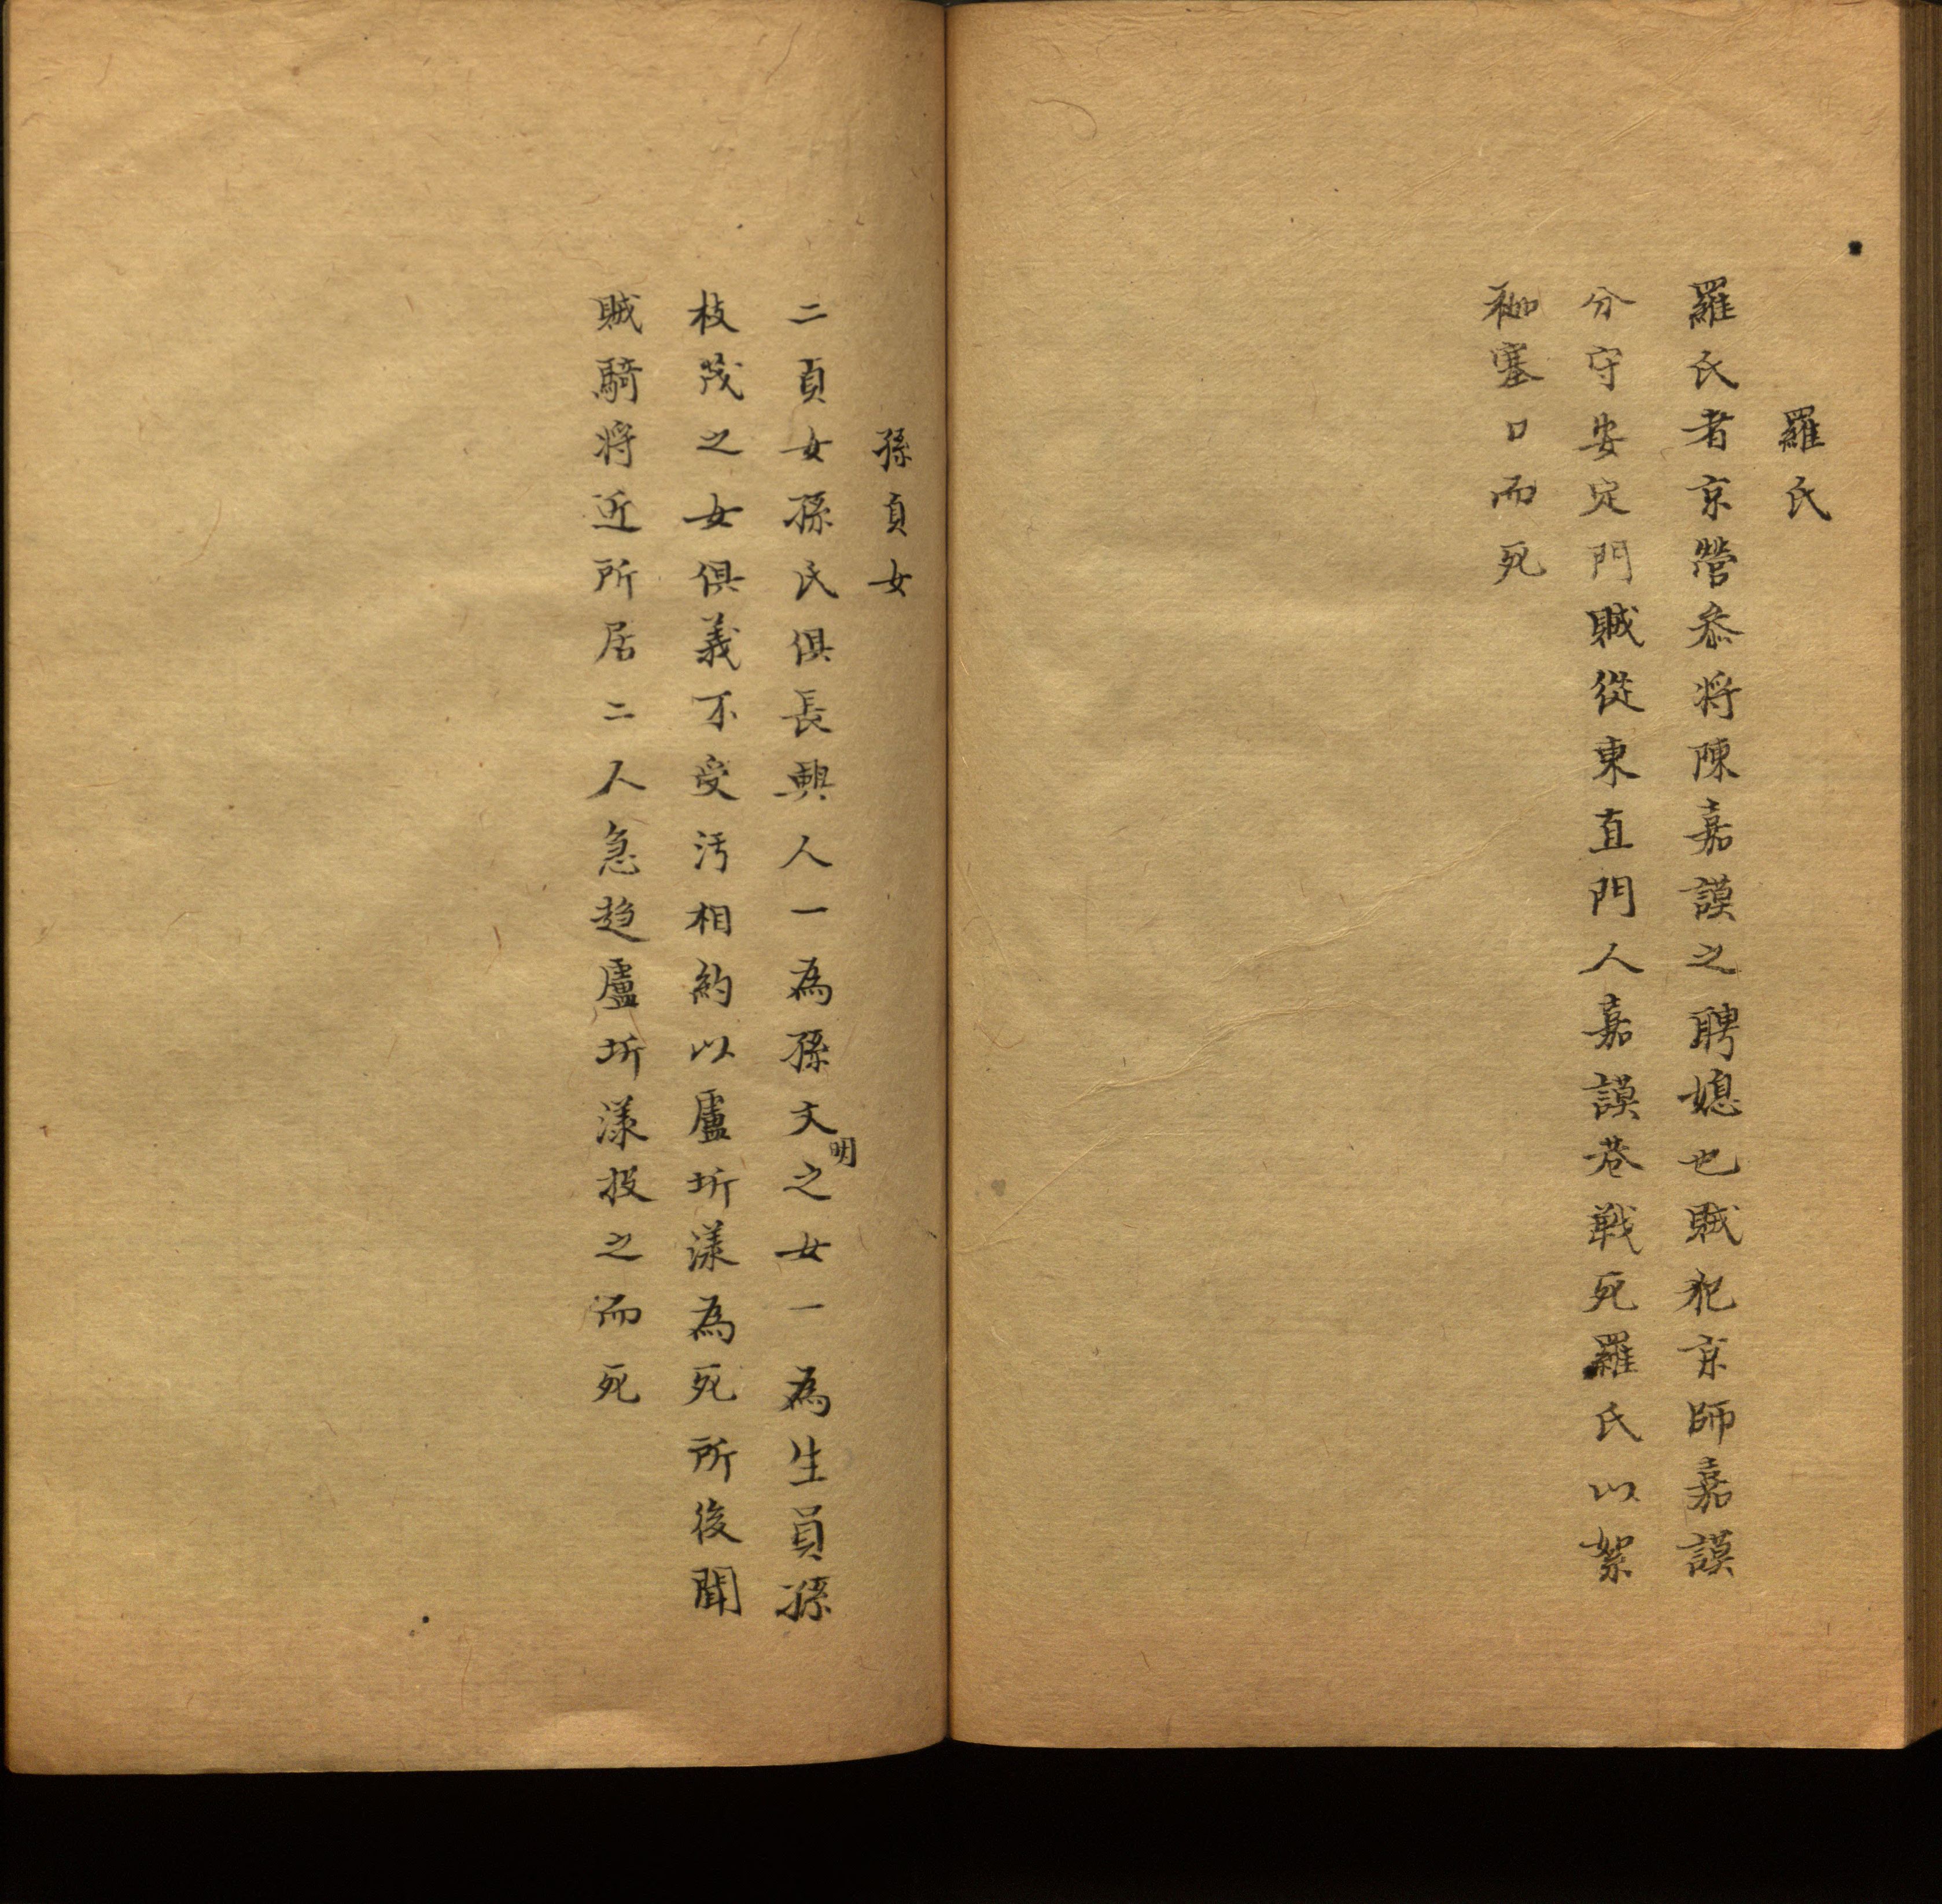 羅氏
羅氏者京營叅将陳嘉謨之聘媳也賊犯京師嘉謨
分守安定門賊從東直門人嘉謨巷戰死羅氏以絮
塞口而死
孫貞女
二貞女孫氏俱長興人一為孫文明之女一為生員孫
枝茂之女俱義不受汚相約以廬圻漾為死所後聞
賊騎将近所居二人急趋廬圻漾投之而死